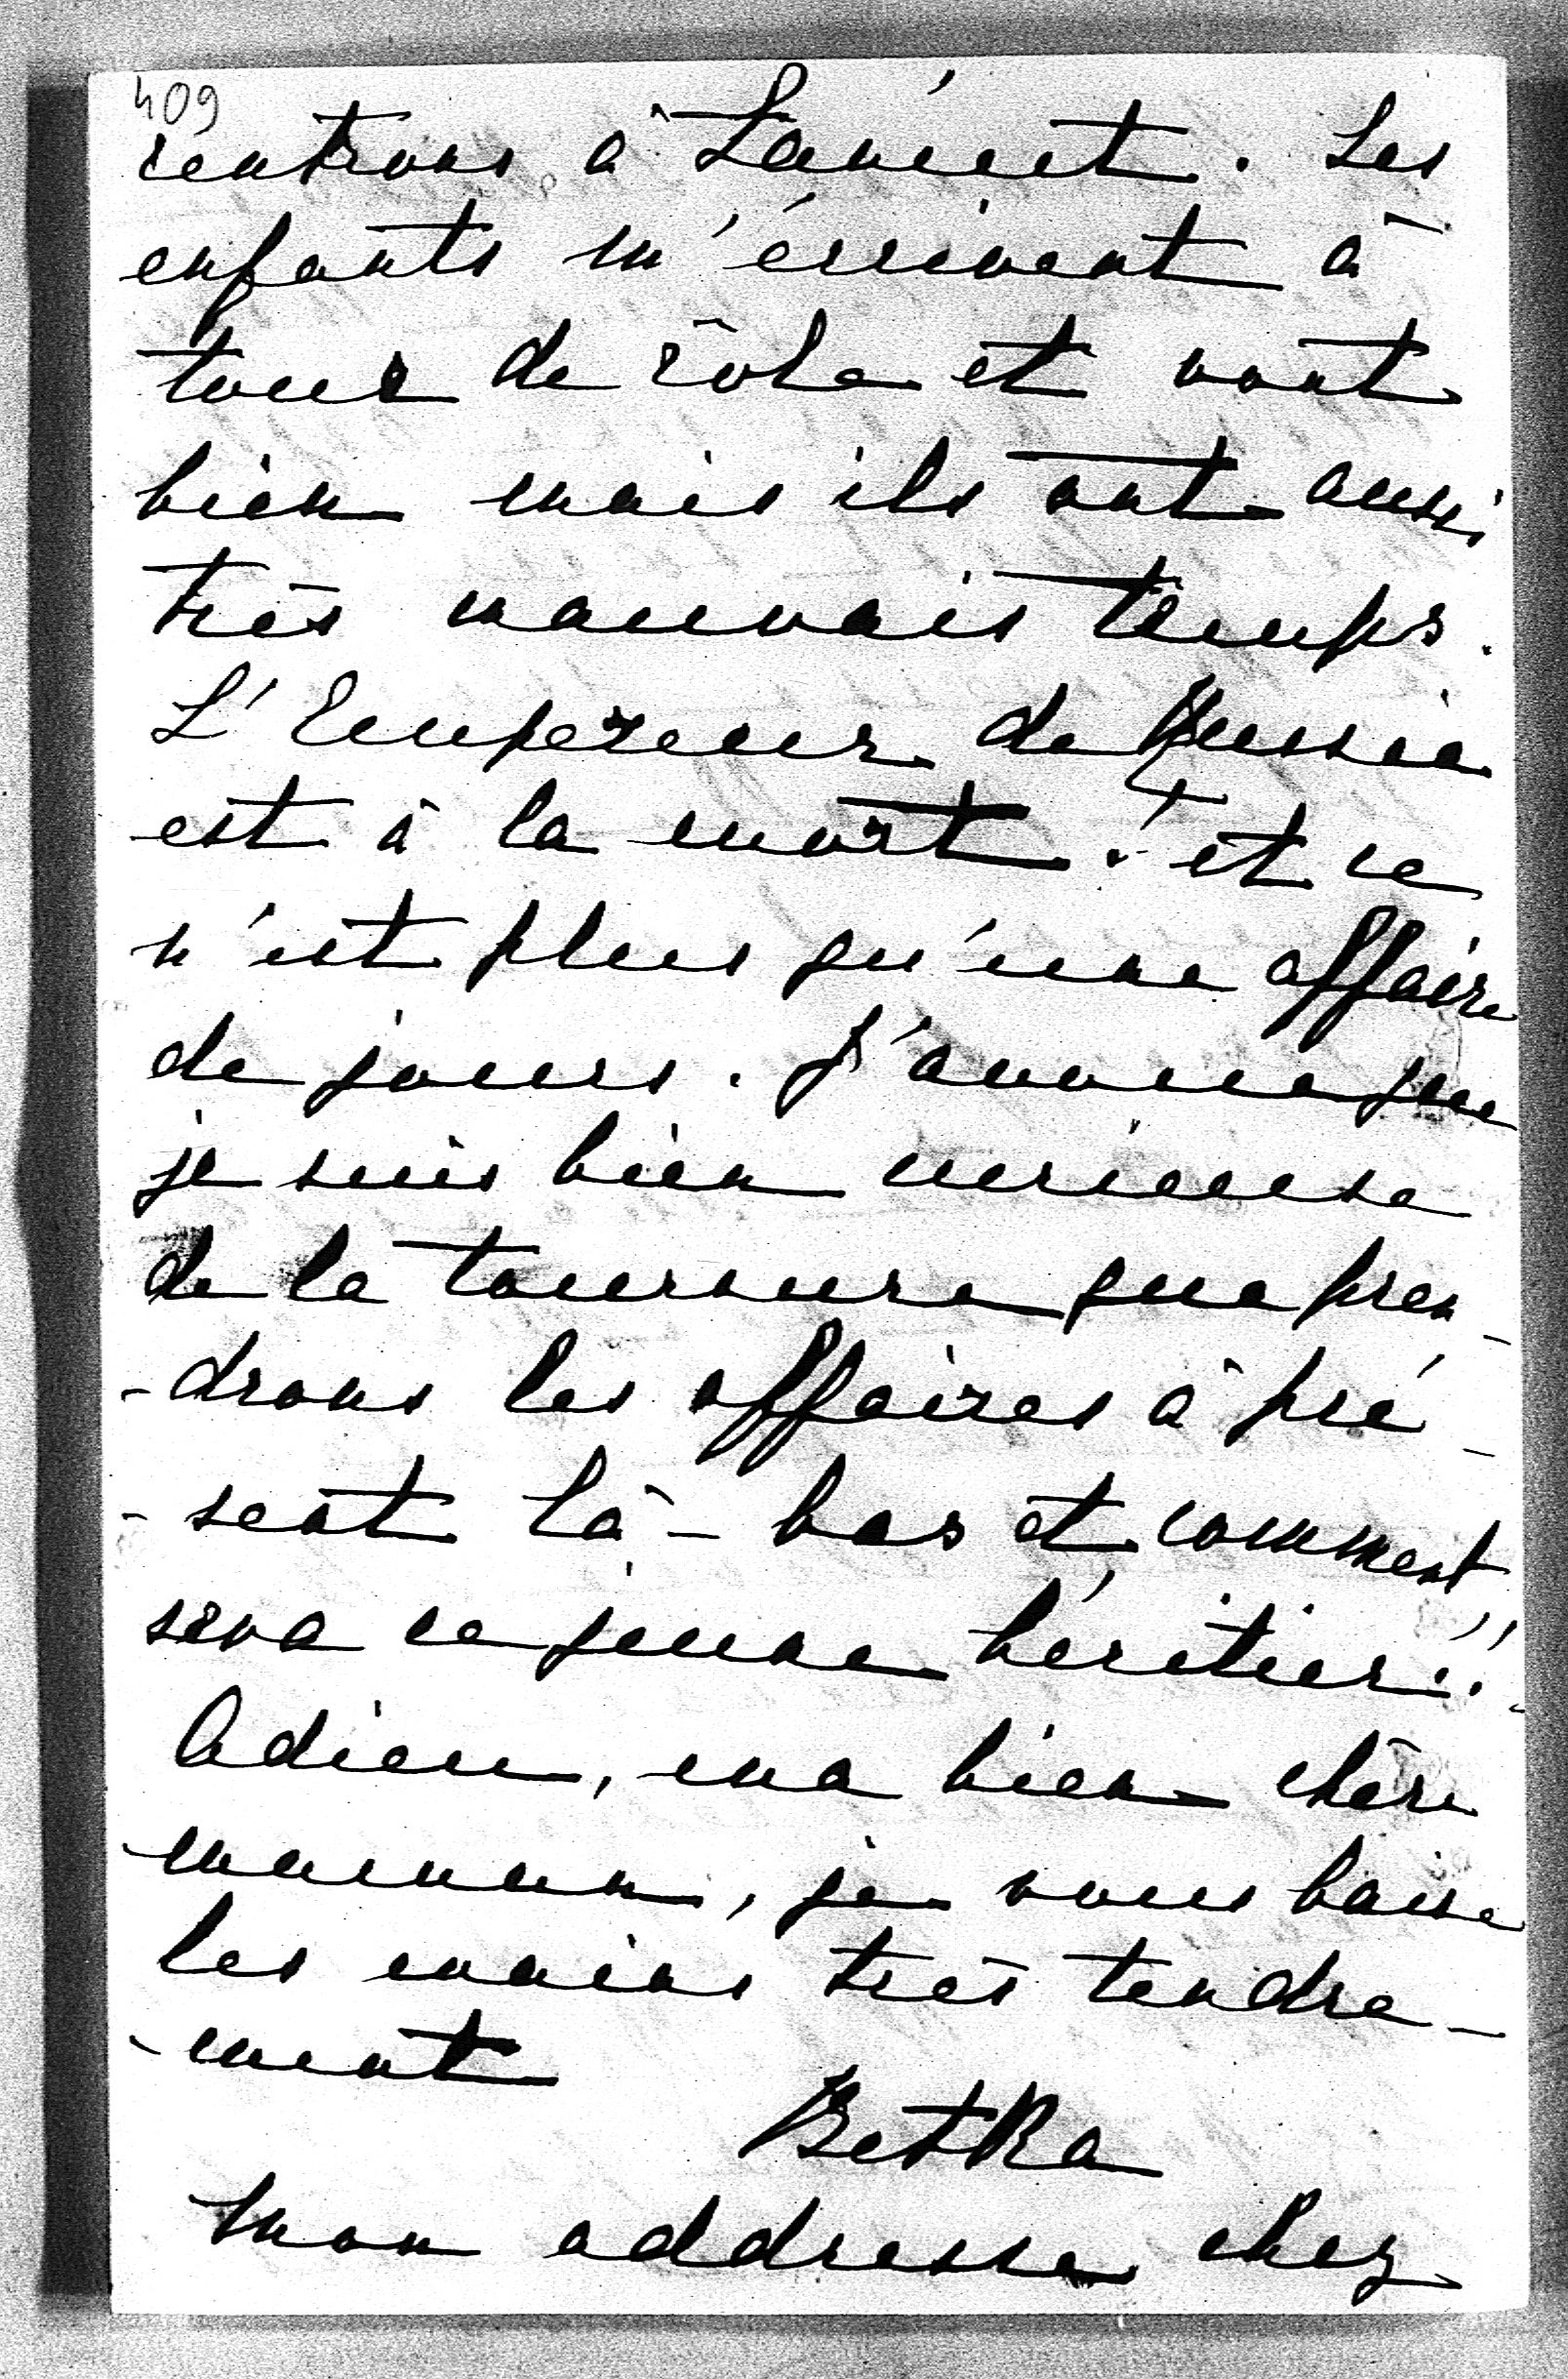 409
rentrons à Lancut. Les
enfants m'écrivent à
tour de rôle et vont
bien mais ils ont aussi
très mauvais temps.
L'Empereur de Russie
est à la mort! et ce
n'est plus qu'une affaire
de jours. J'avoue que
je suis bien curieuse
de la tournure que pren-
-drons les affaires à pré-
-sent là-bas et comment
sera ce jeune héritier!!
Adieu, ma bien chère
maman, je vous baise
les mains très tendre-
-ment
Betka
Mon addresse chez